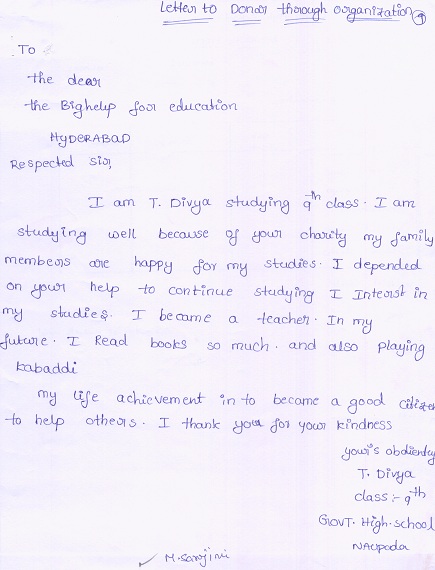 Letter to Donar through organization 9
To
the dear
the Bighelp for education
HYDERABAD
Respected sir,
I am T. Divya studying 9th class. I am
studying well because of your charity my family
members are happy for my studies. I depended
on your help to continue studying I Interst in
my studies. I became a teacher. In my
future. I Read books so much. and also playing
kabaddi
my life achievement in to became a good citizen
to help others. I thank you for your kindness
your's obdiently
T. Divya
class:- 9th
GOVT. High. school
Naupada
M. Sarojini